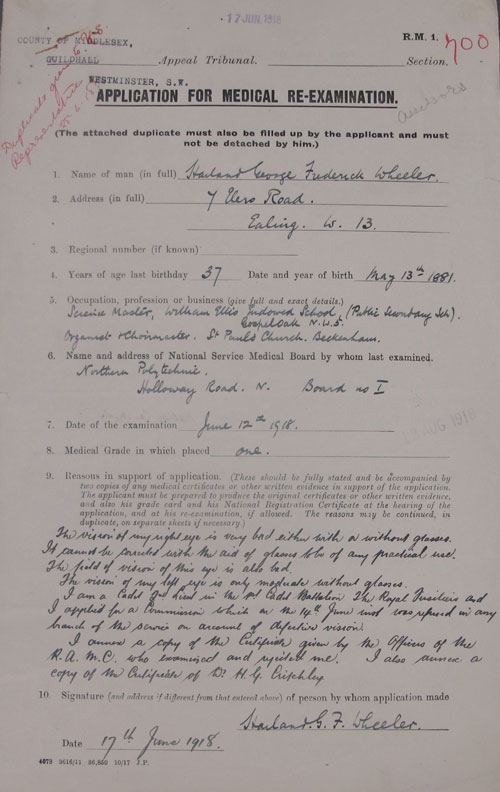 17 JUN 1918
COUNTY OF MIDDLESEX,
GUILDHALL
WESTMINSTER, S.W.
Appeal Tribunal.
R.M. 1.
Section.
700
Duplicate
Representative
APPLICATION FOR MEDICAL RE-EXAMINATION.
(The attached duplicate must also be filled up by the applicant and must
not be detached by him.)
1. Name of man (in full) Harland George Frederick Wheeler.
2. Address (in full) 7 Elers Road.
Ealing. W. 13.
3. Regional number (if known)
4. Years of age last birthday 37 Date and year of birth May 13th 1881.
5. Occupation, profession or business (give full and exact details.)
Science Master, William Ellis Endowed School, (Public Secondary Sch).
Gospel Oak N.W.5.
Organist & Choirmaster. St Pauls Church. Beckenham.
6. Name and address of National Service Medical Board by whom last examined.
Northern Polytechnic.
Holloway Road. N. Board no I
7. Date of the examination June 12th 1918.
AUG 1918
8. Medical Grade in which placed one.
9. Reasons in support of application. (These should be fully stated and be accompanied by
two copies of any medical certificates or other written evidence in support of the application.
The applicant must be prepared to produce the original certificates or other written evidence,
and also his grade card and his National Registration Certificate at the hearing of the
application, and at his re-examination, if allowed. The reasons may be continued, in
duplicate, on separate sheets if necessary.)
The vision of my right eye is very bad either with or without glasses.
It cannot be corrected with the aid of glasses to be of any practical use.
The field of vision of this eye is also bad.
The vision of my left eye is only moderate without glasses.
I am a Cadet 2nd Lieut in the 1st Cadet Battalion The Royal Fusiliers and
I applied for a Commission which on the 14th June inst was refused in any
branch of the service on account of defective vision.
I annex a copy of the Certificate given by the Officer of the
R.A.M.C. who examined and rejected me. I also annex a
copy of the Certificate of Dr H. G. Critchley
10. Signature (and address if different from that entered above) of person by whom application made
Harland G. F. Wheeler.
Date 17th June 1918.
4073 9616/11 36,850 10/17 J.P.